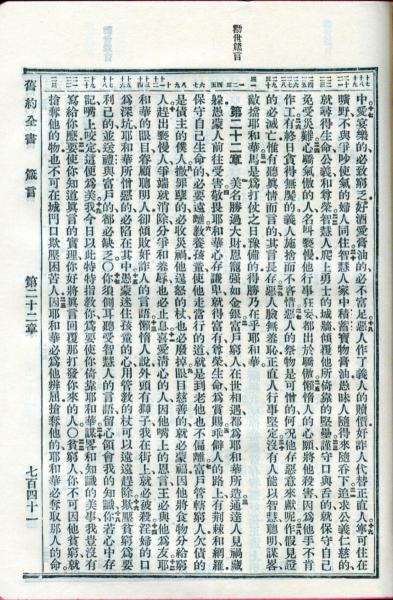 中愛宴樂的必致窮乏好酒愛膏油的必不富足惡人作了義人的贖價奸詐人代替正直人寧可住在
曠野不與爭吵使氣的婦人同住智慧人家中積蓄寶物膏油愚昧人隨得來隨吞下追求公義仁慈的
就尋得生命公義和尊榮智慧人爬上勇士的城牆傾覆他所倚靠的堅壘謹守口與舌的就保守自己
免受災難心驕氣傲的人名叫褻慢他行事狂妄都出於驕傲懶惰人的心願將他殺害因為他手不肯
作工有終日貪得無饜的義人施捨而不吝惜惡人的祭物是可憎的何況他存惡意來獻呢作假見證
的必滅亡惟有聽真情而言的其言長存惡人臉無羞恥正直人行事堅定沒有人能以智慧聰明謀畧
敵擋耶和華馬是為打仗之日豫備的得勝乃在乎耶和華
第二十二章 美名勝過大財恩寵強如金銀富戶窮人在世相遇都為耶和華所造通達人見禍藏
躲愚蒙人前往受害敬畏耶和華心存謙卑就得富有尊榮生命為賞賜乖僻人的路上有荊棘和網羅
保守自己生命的必要遠離教養孩童使他走當行的道就是到老他也不偏離富戶管轄窮人欠債的
是債主的僕人撒罪孽的必收災禍他逞怒的杖也必廢掉眼目慈善的就必蒙福因他將食物分給窮
人趕出褻慢人爭端就消除分爭和羞辱也必止息喜愛清心的人因他嘴上的恩言王必與他為友耶
和華的眼目眷顧聰明人卻傾敗奸詐人的言語懶惰人說外頭有獅子我在街上就必被殺淫婦的口
為深坑耶和華所憎惡的必陷在其中愚蒙迷住孩童的心用管教的杖可以遠遠趕除欺壓貧窮為要
利己的並送禮與富戶的都必缺乏〇你須側耳聽受智慧的言語留心領會我的知識你若心中存
記嘴上咬定這便為美我今日以此特特指教你為要使你倚靠耶和華謀畧和知識的美事我豈沒有
寫給你麼要使你知道真言的實理你好將真言回覆那打發你來的人〇貧窮人你不可因他貧窮就
搶奪他的物也不可在城門口欺壓困苦人因耶和華必為他辨屈搶奪他的耶和華必奪取那人的命
舊約全書 箴言 第二十二章 七百四十一